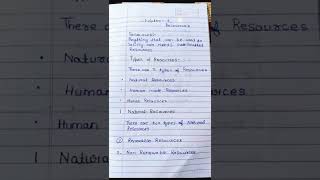 Chapter - 1
Resources
Resources:-
Anything that can be used to
satisfy our needs are called
Resources
Types of Resources:-
There are 3 types of Resources
Natural Resources
Human made Resources
Human Resources
1 Natural Resources
There are two types of Natural
Resources
1 Renewable Resources
2. Non Renewable Resources
There a
Natura
Human
Human
1 Natura